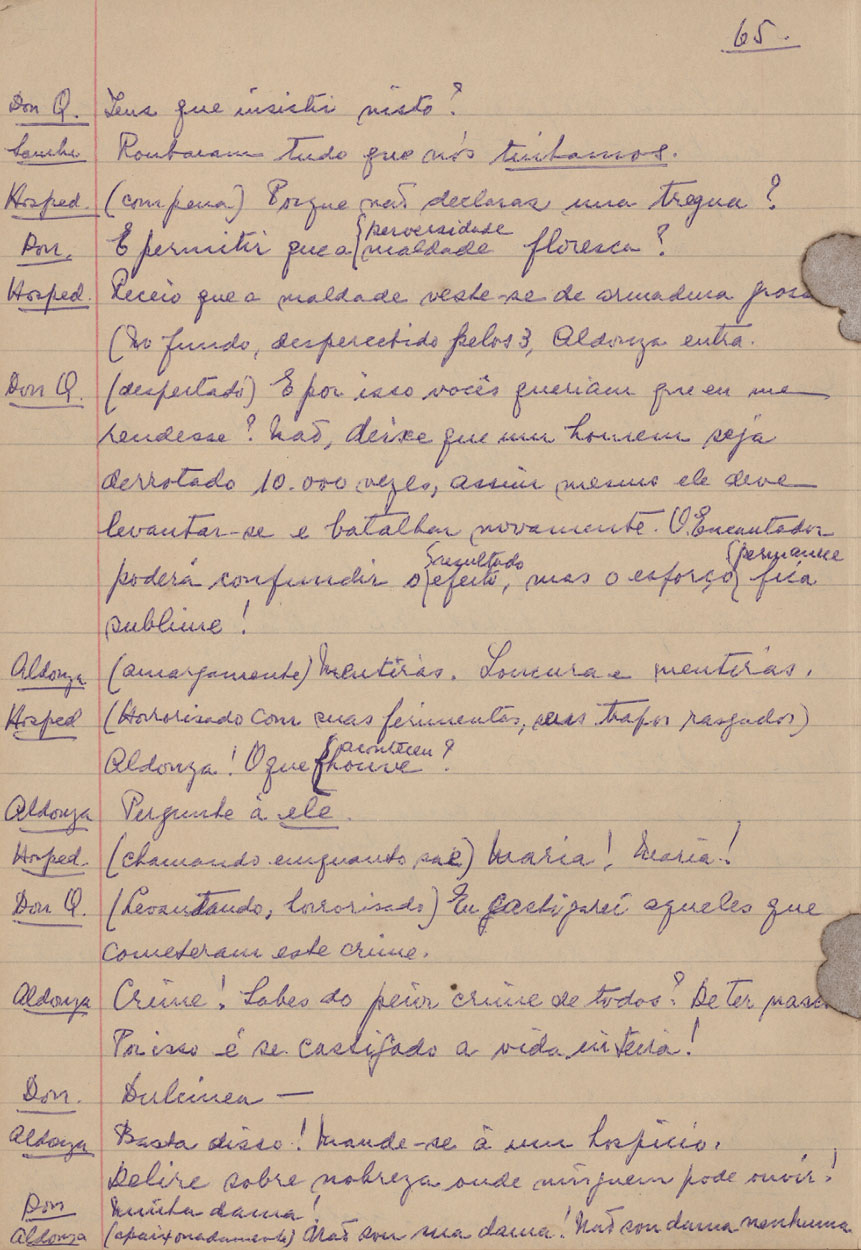 65.
Don Q. Tens que insistir nisto?
Sancho Roubaram tudo que nós tinhamos.
Hosped. (com pena) Porque não declaras uma tregua?
Don. E permitir que a {perversidade {maldade floresca?
Hosped. Receio que a maldade veste-se de armadura
(No fundo, despercebido pelos 3, Aldonza entra.
Don Q. (despertado) E por isso vocês queriam que eu me
rendesse? Não, deixe que um homem seja
derrotado 10.000 vezes, assim mesmo ele deve
levantar-se e batalhar novamente. O Encantador
poderá confundir o {resultado {efeito, mas o esforço {permanece {fica
sublime!
Aldonza (amargamente) Mentiras. Loucura e mentiras.
Hosped (Horrorisado com suas ferimentos, seus trapos rasgados)
Aldonza! O que {aconteceu {houve?
Aldonza Pergunte à ele.
Hosped. (chamando emquanto sae) Maria! Maria!
Don Q. (Levantando, horrorisado) Eu castigarei aqueles que
cometeram este crime.
Aldonza Crime! Sabes do peior crime de todos? De ter
Por isso é se castigado a vida inteira!
Don. Dulcinea —
Aldonza Basta disso! Mande-se à um hospicio.
Delire sobre nobreza onde ninguem pode ouvir!
Don Minha dama!
Aldonza (apaixonadamente) Não sou sua dama! Não sou dama nenhuma